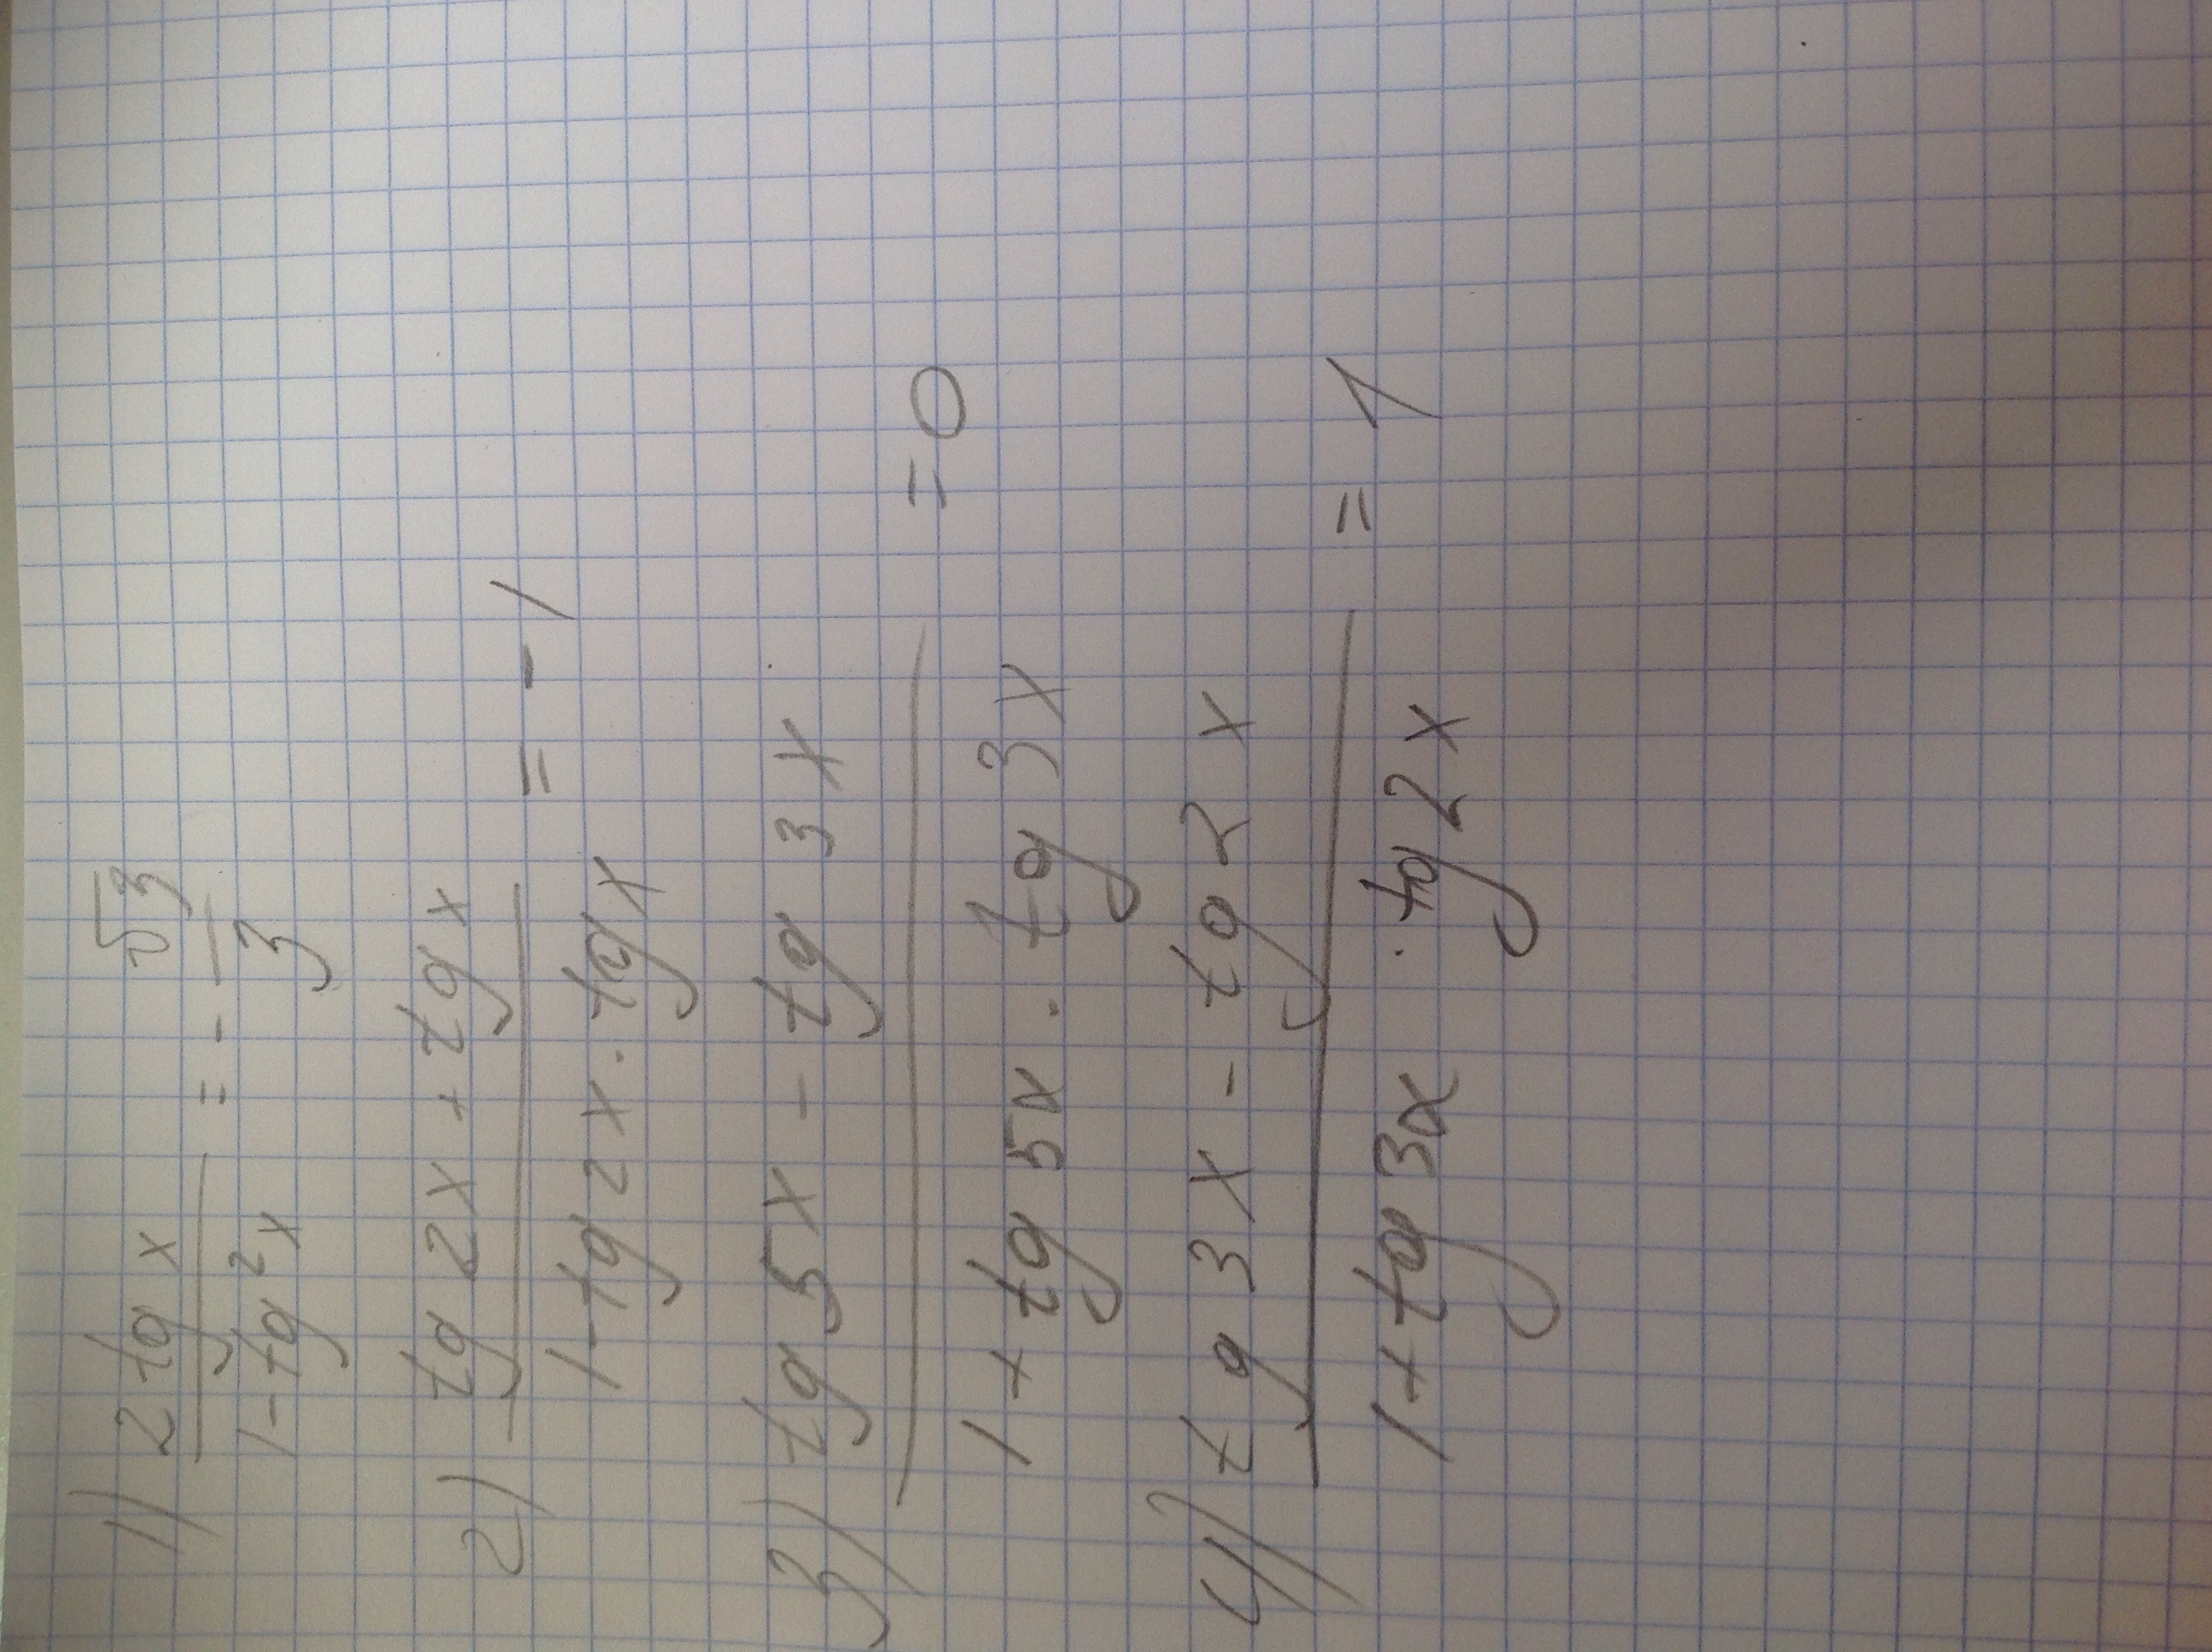 1) 2 tg x / 1 - tg² x = - √3 / 3
2) tg 2x + tg x / 1 - tg 2x · tg x = - 1
3) tg 5x - tg 3x / 1 + tg 5x · tg 3x = 0
4) tg 3x - tg 2x / 1 + tg 3x · tg 2x = 1